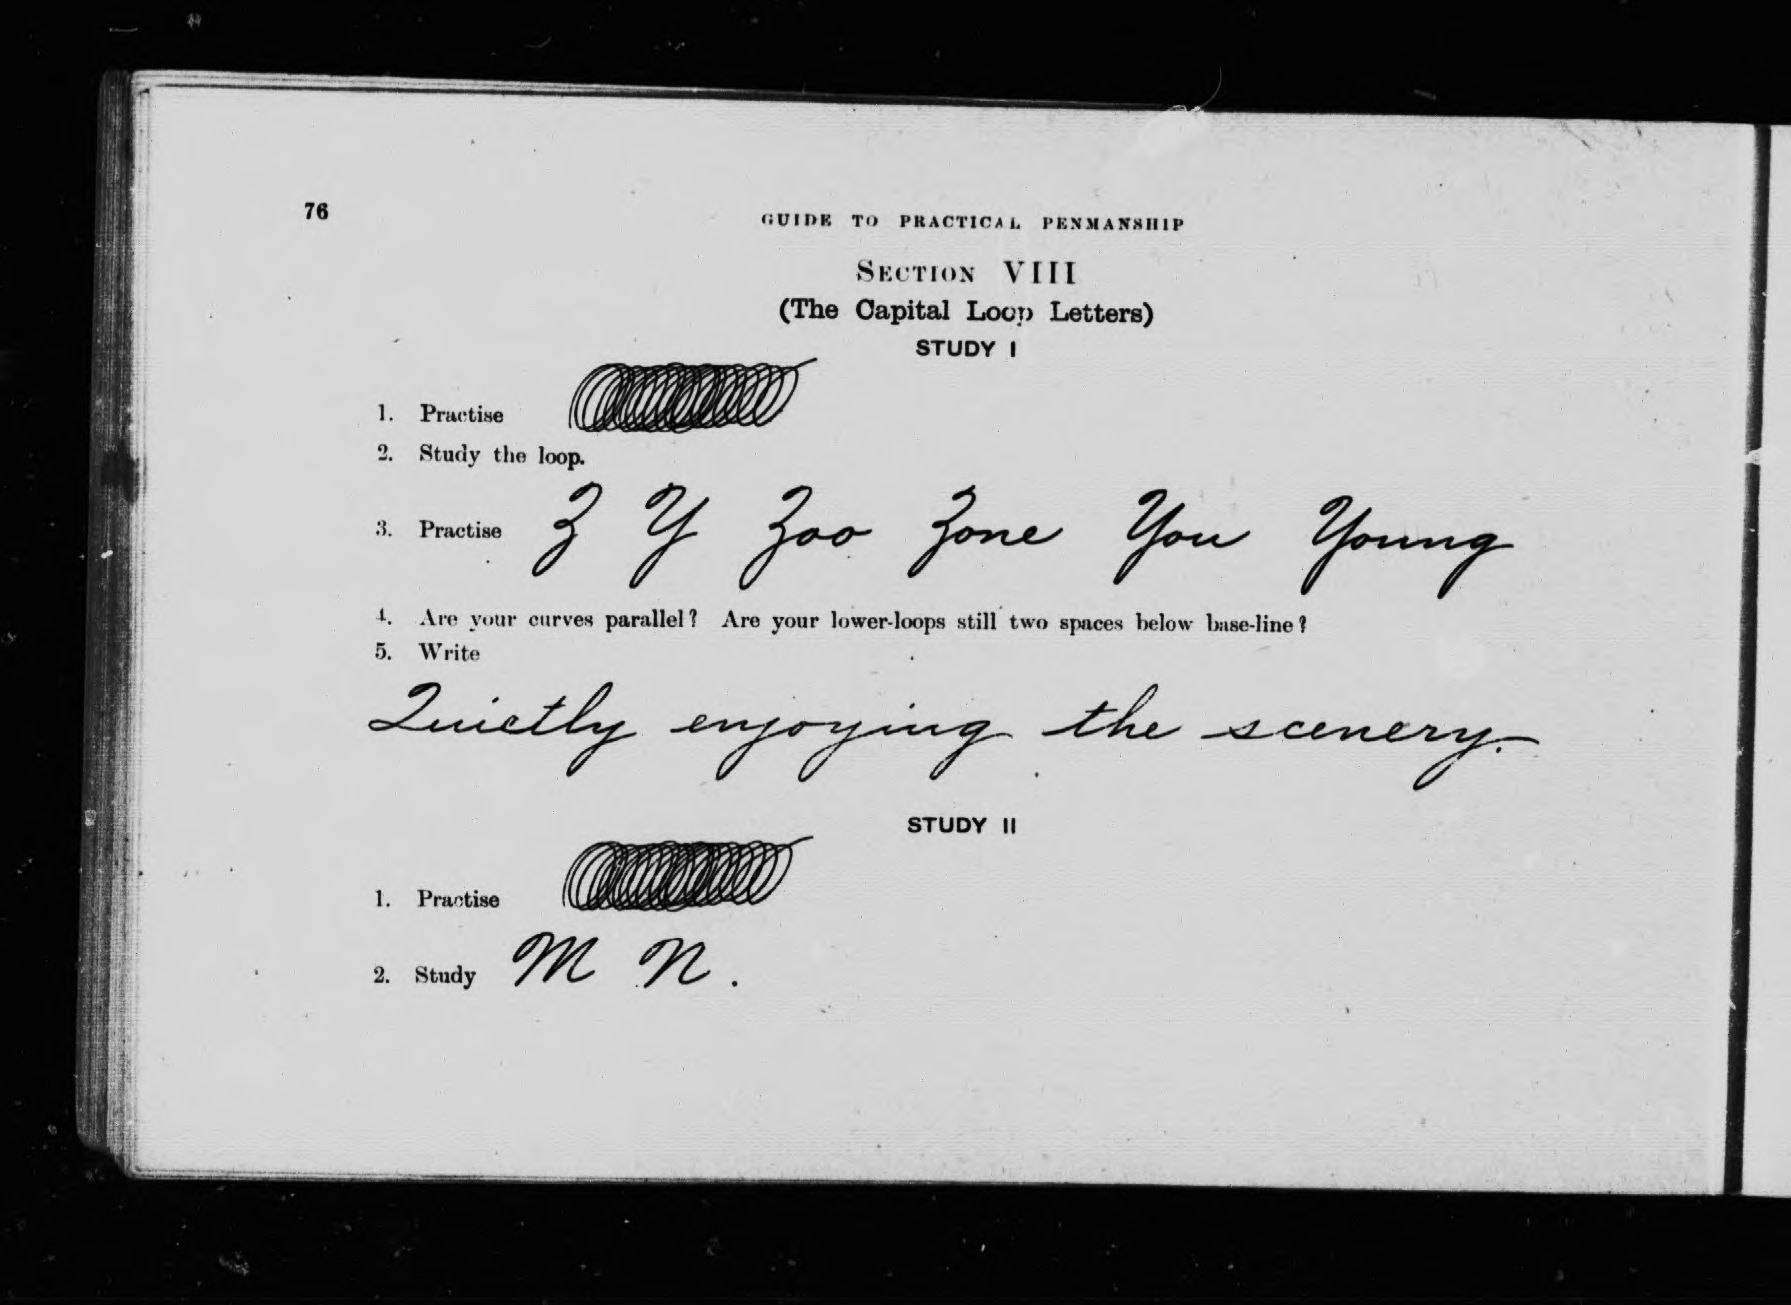 76
GUIDE TO PRACTICAL PENMANSHIP
SECTION VIII
(The Capital Loop Letters)
STUDY I
1. Practise
2. Study the loop.
3. Practise Z Y Zoo Zone You Young
4. Are your curves parallel? Are your lower-loops still two spaces below base-line?
5. Write
Quietly enjoying the scenery.
STUDY II
1. Practise
2. Study M N.